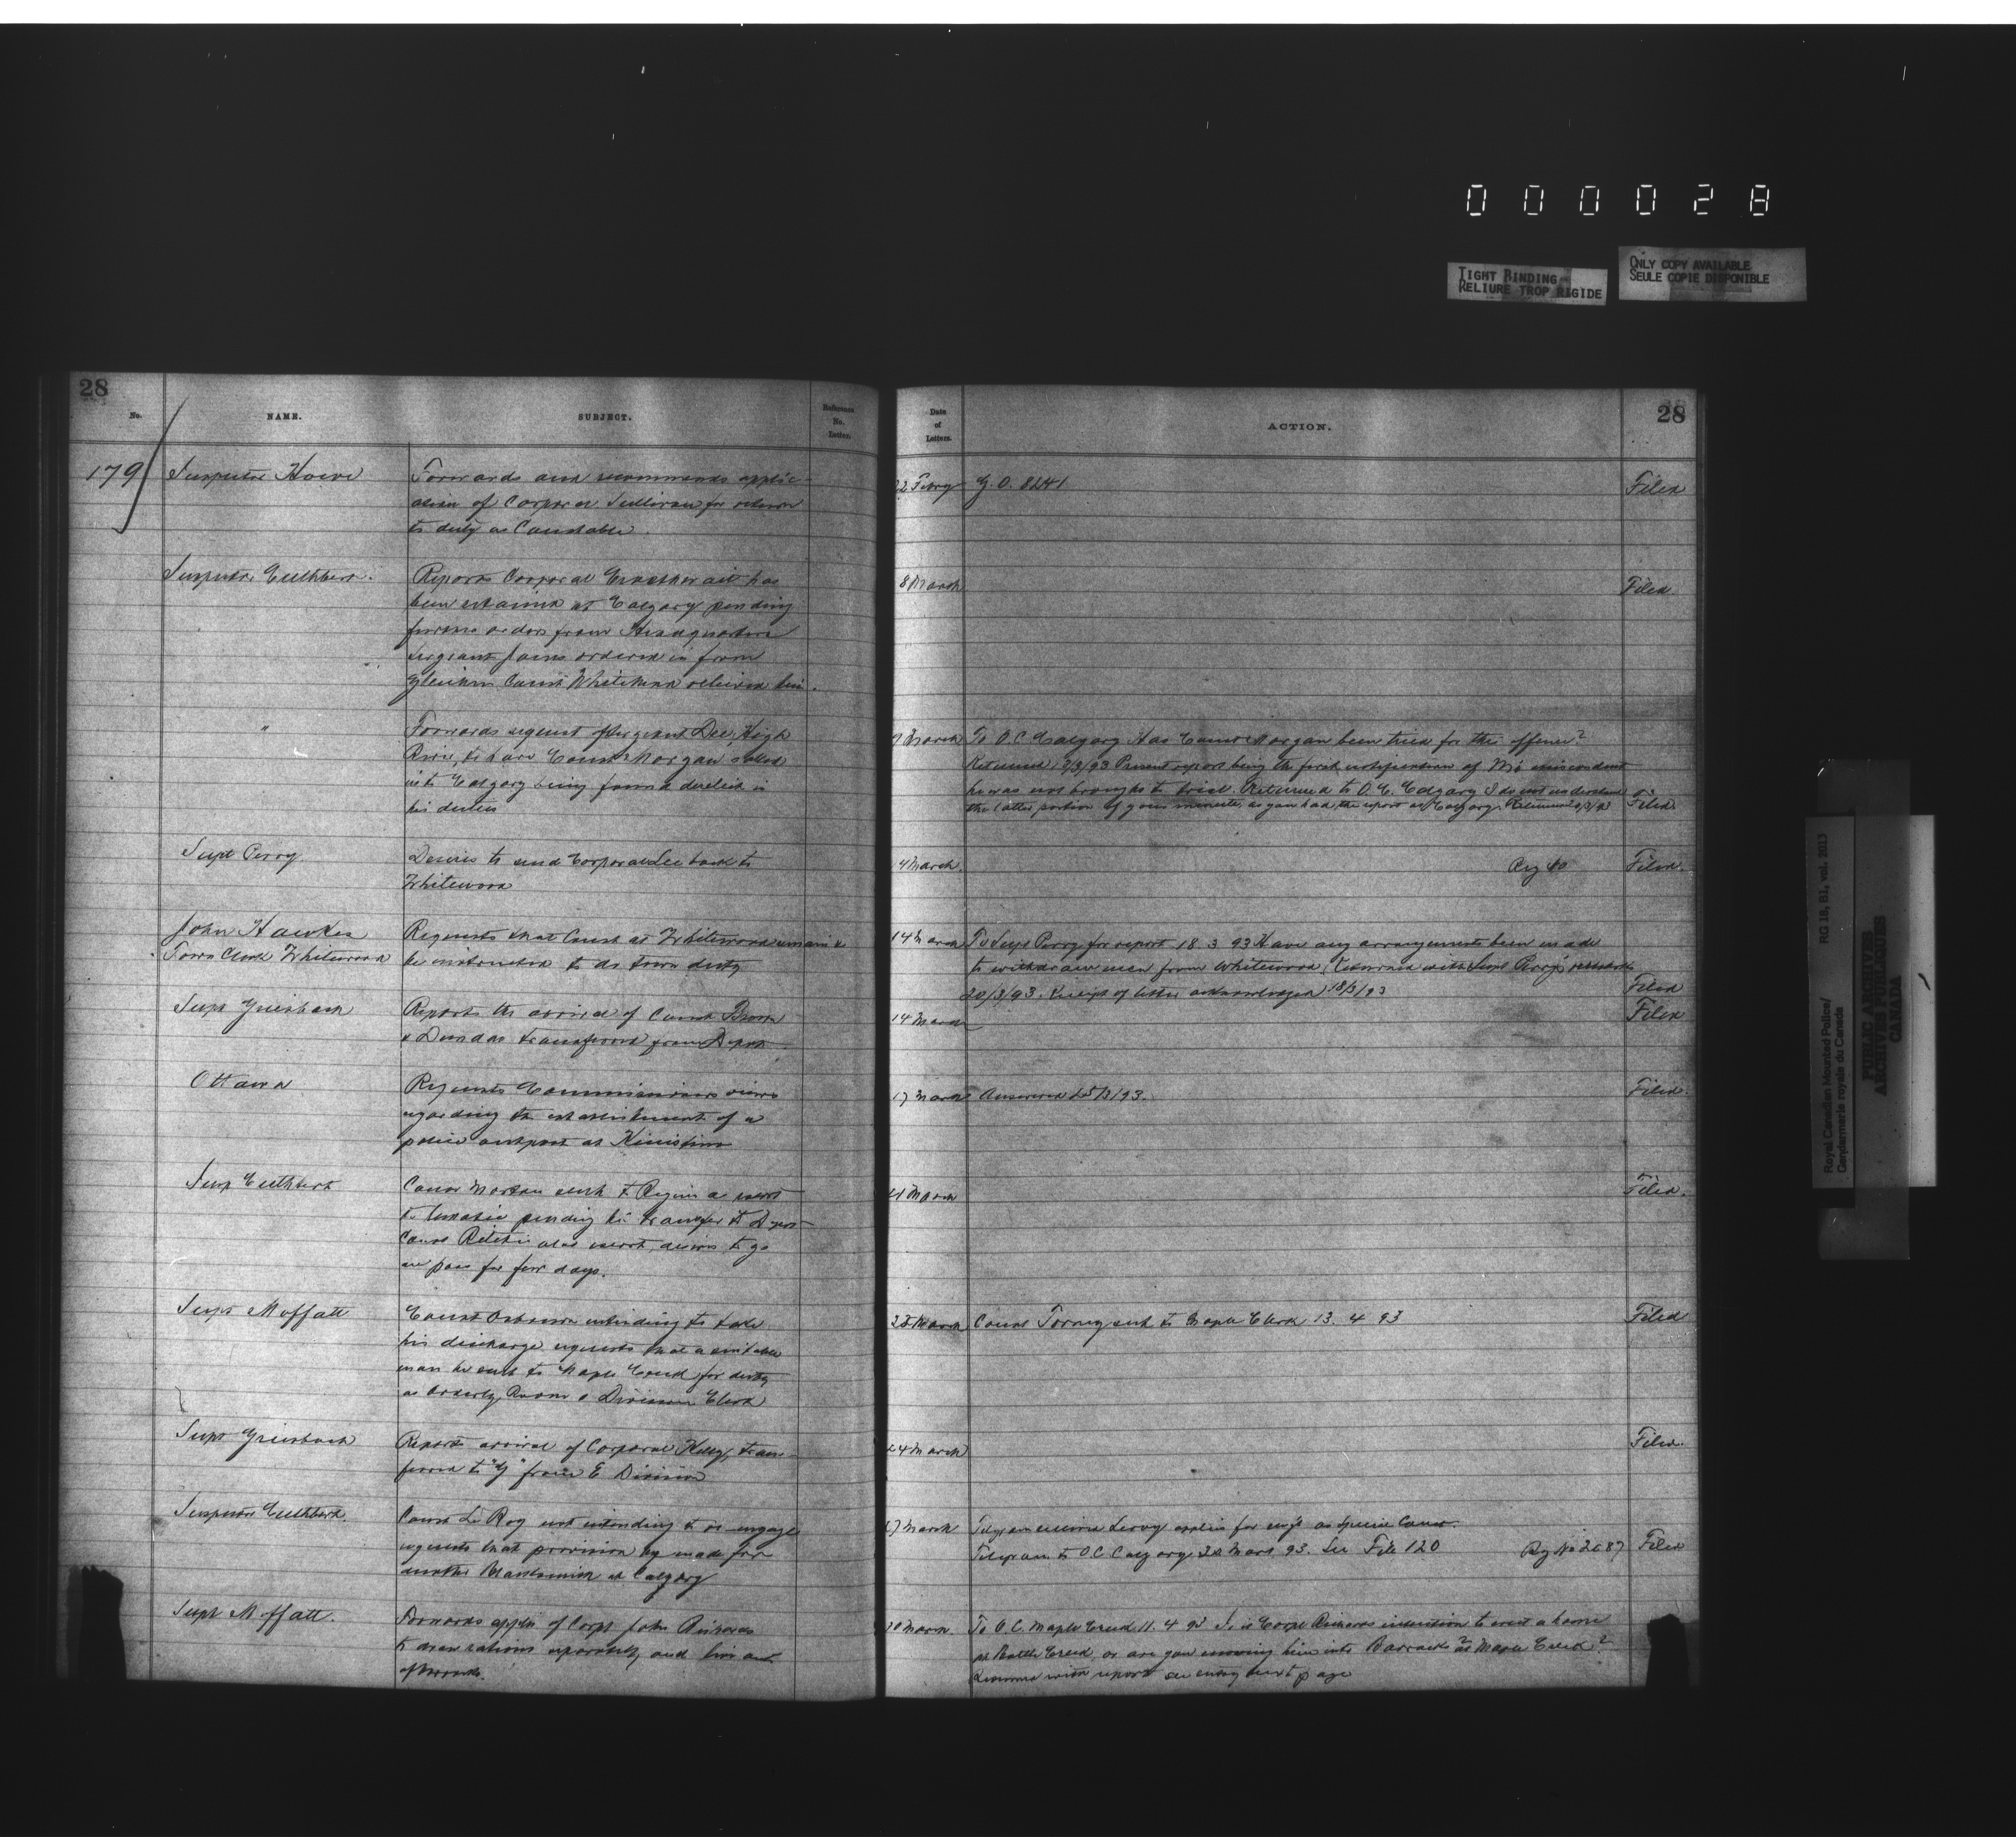 000028
TIGHT BINDING
RELIURE TROP RIGIDE
ONLY COPY AVAILABLE
SEULE COPIE DISPONIBLE
28
No.
NAME.
SUBJECT.
Reference
No.
Letter.
Date
of
Letters.
ACTION.
28
179
Inspector Howe
Forwards and recommends applic-
ation of Corporal Sullivan for return
to duty as Constable
22 Febry
G.O. 8241
Filed
Inspector Cuthbert
Reports Corporal has
been retained at Calgary pending
further orders from Headquarters
Sergeant ordered in from
Gleichen Const Whitehead relieved him.
8 March
Filed
"
Forwards request of Sergeant Dee, High
River, to have Const Morgan called
into Calgary being found derelict in
his duties
March
To O.C. Calgary Has Const Morgan been tried for this offence?
Returned /3/93 Present report being the first of M's misconduct
he was not brought to trial. Returned to O.C. Calgary I do not understand
the latter portion of your minute, as you had the report at Calgary. Returned
Filed
Supt Perry
Desires to send Corporal Lee back to
Whitewood
14 March
Reg 40
Filed
John Hawkes
Town Clerk Whitewood
Requests that Const at Whitewood remain &
be instructed to do town duty
14 March
To Supt Perry for report 18 3 93 Have any arrangements been made
to withdraw men from Whitewood, Returned with Supt Perry's
20/3/93. Receipt of letter acknowledged 18/3/93
Filed
Supt Griesbach
Reports the arrival of Const Brown
& Dundas transferred from Depot
14 March
Filed
Ottawa
Requests Commissioners views
regarding the establishment of a
police outpost at Kinistino
17 March
Answered 25/3/93.
Filed.
Insp Cuthbert
Const sent to Regina as escort
to lunatic pending his transfer to Depot
Const Ritchie also escort, desires to go
on pass for few days.
March
Filed.
Supt Moffatt
Const Osborne intending to take
his discharge requests that a suitable
man be sent to Maple Creek for duty
as Orderly Room & Division Clerk
25 March
Const sent to Maple Creek 13. 4 93
Filed
Supt Griesbach
Reports arrival of Corporal Kelly, trans-
ferred to "G" from E Division
24 March
Filed.
Inspector Cuthbert
Const Le Roy not intending to re-engage
requests that provision be made for
another at Calgary
March
Telegram received Leroy applies for as Special Const.
Telegram to O.C. Calgary 93. See File 120
Reg No 2687
Filed
Supt Moffatt.
Forwards appln of Corpl John Richards
to draw rations separately and live out
of barracks.
March.
To O.C. Maple Creek 11. 4 93 Is it Corpl Richards intention to erect a house
at Battle Creek, or are you moving him into Barracks at Maple Creek?
Returned with report see entry next page
Royal Canadian Mounted Police/
Gendarmerie royale du Canada
RG 18, B1, vol. 2013
PUBLIC ARCHIVES
ARCHIVES PUBLIQUES
CANADA